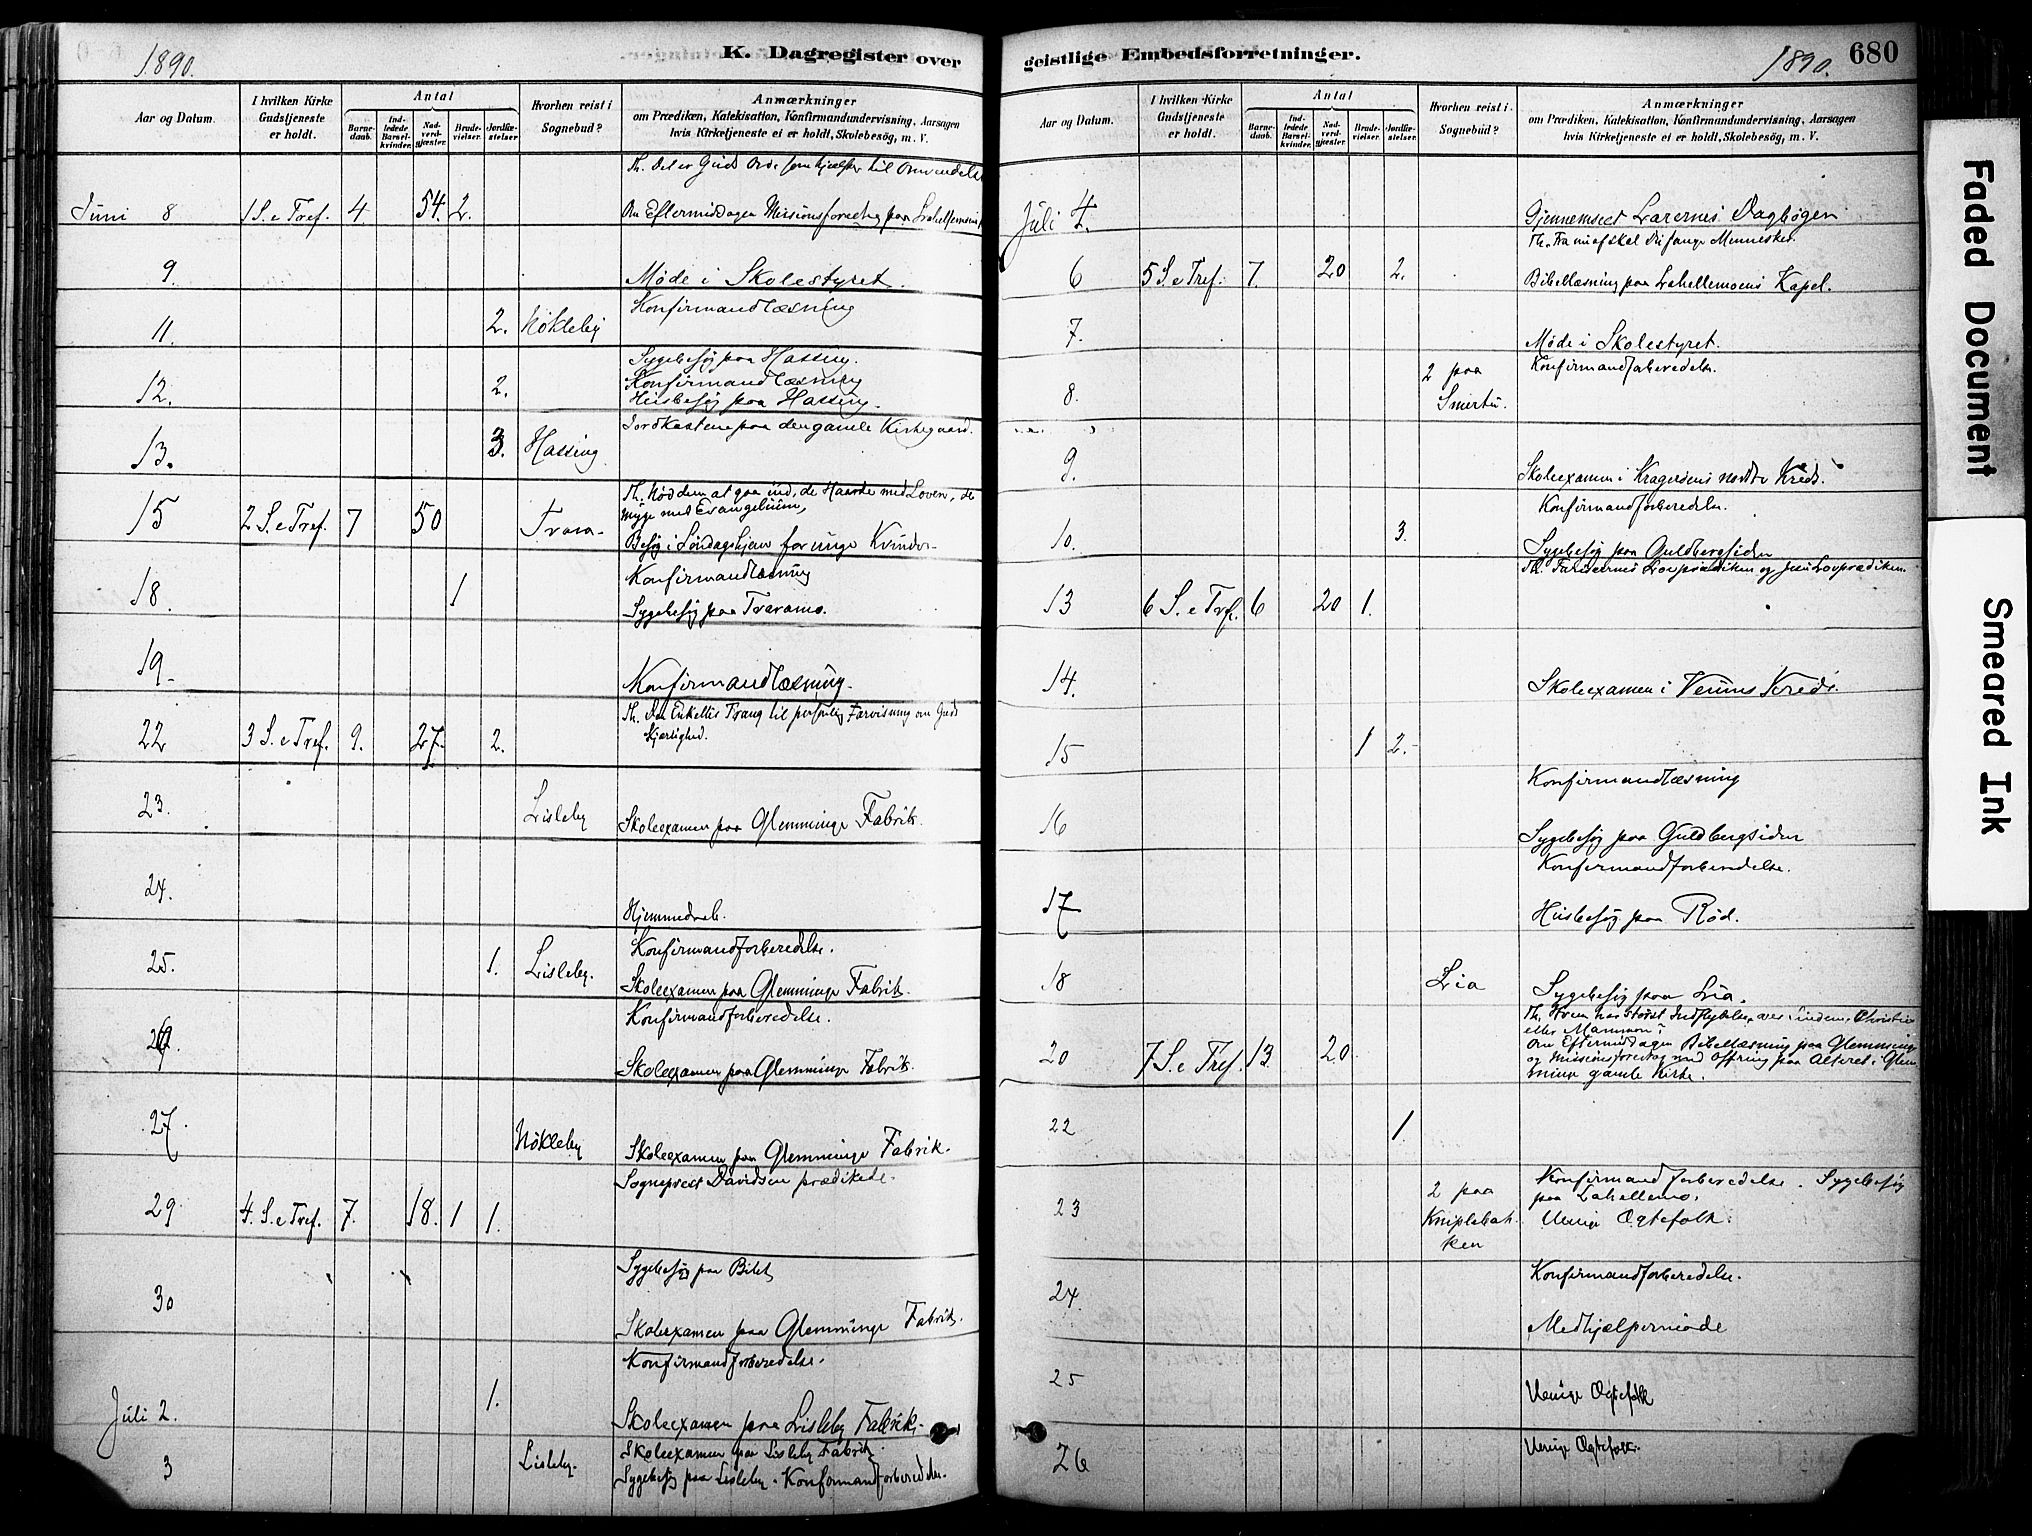 1890.
K. Dagregister over
Aar og Datum.
I hvilken Kirke Gudstjeneste er holdt.
Antal
Barnedaab.
Indledede Barselkvinder.
Nadverdgjæster.
Brudevielser.
Jordfæstelser.
Hvorhen reist i Sognebud?
Anmærkninger
om Prædiken, Katekisation, Konfirmandundervisning, Aarsagen
hvis Kirketjeneste ei er holdt, Skolebesög, m. V.
Th. Det er Guds Ord som hjælper til Omvendelse
Juni 8 1 S. e Tref. 4 54. 2. Om Eftermiddagen Missionsforedrag paa
9. Møde i Skolestyret.
Konfirmandlæsning
11. 2. Nökleby
Sygebesög paa Hassing.
12. 2. Konfirmandlæsning
Husbesög paa Hassing.
Jordkastene paa den gamle Kirkegaard.
13. 3. Hassing
Th. Nød dem at gaa ind, de Haarde med Loven, de
15 2 S. e Tref. 7 50 Trara- myge med Evangelium,
Besög i Söndagshjem for unge Kvinder-
18. 1 Konfirmandlæsning
Sygebesög paa Traramo.
19. Konfirmandlæsning.
Th. Den Enkeltes Trang til personlig Forvisning om Guds
22 3 S. e Tref. 9. 27. 2. Kjærlighed.
23. Lisleby Skoleexamen paa Glemminge Fabrik.
24. Hjemmedaab.
25. 1. Lisleby. Konfirmandforberedelse.
Skoleexamen paa Glemminge Fabrik.
Konfirmandforberedelse.
26. Skoleexamen paa Glemminge Fabrik.
27. Nökleby Skoleexamen paa Glemminge Fabrik.
Sogneprest Davidsen prædikede.
29 4. S. e Tref. 7. 18. 1 1.
Sygebesög paa
30 Skoleexamen paa Glemminge Fabrik.
Konfirmandforberedelse.
Juli 2. 1. Skoleexamen paa Lisleby Fabrik.
3 Lisleby. Skoleexamen paa Lisleby Fabrik.
Sygebesög paa Lisleby. Konfirmandforberedelse.
geistlige Embedsforretninger.
1890. 680
Aar og Datum.
I hvilken Kirke Gudstjeneste er holdt.
Antal
Barnedaab.
Indledede Barselkvinder.
Nadverdgjæster.
Brudevielser.
Jordfæstelser.
Hvorhen reist i Sognebud?
Anmærkninger
om Prædiken, Katekisation, Konfirmandundervisning, Aarsagen
hvis Kirketjeneste ei er holdt, Skolebesög, m. V.
Juli 4. Gjennemseet Lærernes Dagböger
Th. Fra nu af skal Du fange Mennesker.
6 5 S. e Tref. 7. 20 2. Bibellæsning paa Lahellemoens Kapel.
7. Møde i Skolestyret.
8. 2 paa Smertu. Konfirmandforberedelse.
9. Skoleexamen i Kragerøens nordre Kreds.
Konfirmandforberedelse.
10. 3. Sygebesög paa Guldbergsiden
Th. Farisæernes Lovprædiken og Jesu Lovprædiken
13 6 S. e Tref. 6 20 1.
14. Skoleexamen i Veums Kreds.
15 1 2.
Konfirmandlæsning
16 Sygebesög paa Guldbergsiden
Konfirmandforberedelse.
17 Husbesög paa Röd.
18 Lia Sygebesög paa Lia.
Th. Hvem har störst Indflydelse over Sindene, Christus
eller Mammon?
20 7 S. e Tref. 13. 20 Om Eftermiddagen Bibellæsning paa Glemminge
og Missionsforedrag med Offring paa Alteret i Glem
minge gamle Kirke.
22 1
23 2 paa Kniplebakken Konfirmandforberedelse. Sygebesög
paa Lahellemo.
Uenige Ægtefolk.
24. Konfirmandforberedelse.
Medhjælpermöde
25 Uenige Ægtefolk
26 Uenige Ægtefolk.
Faded Document
Smeared Ink